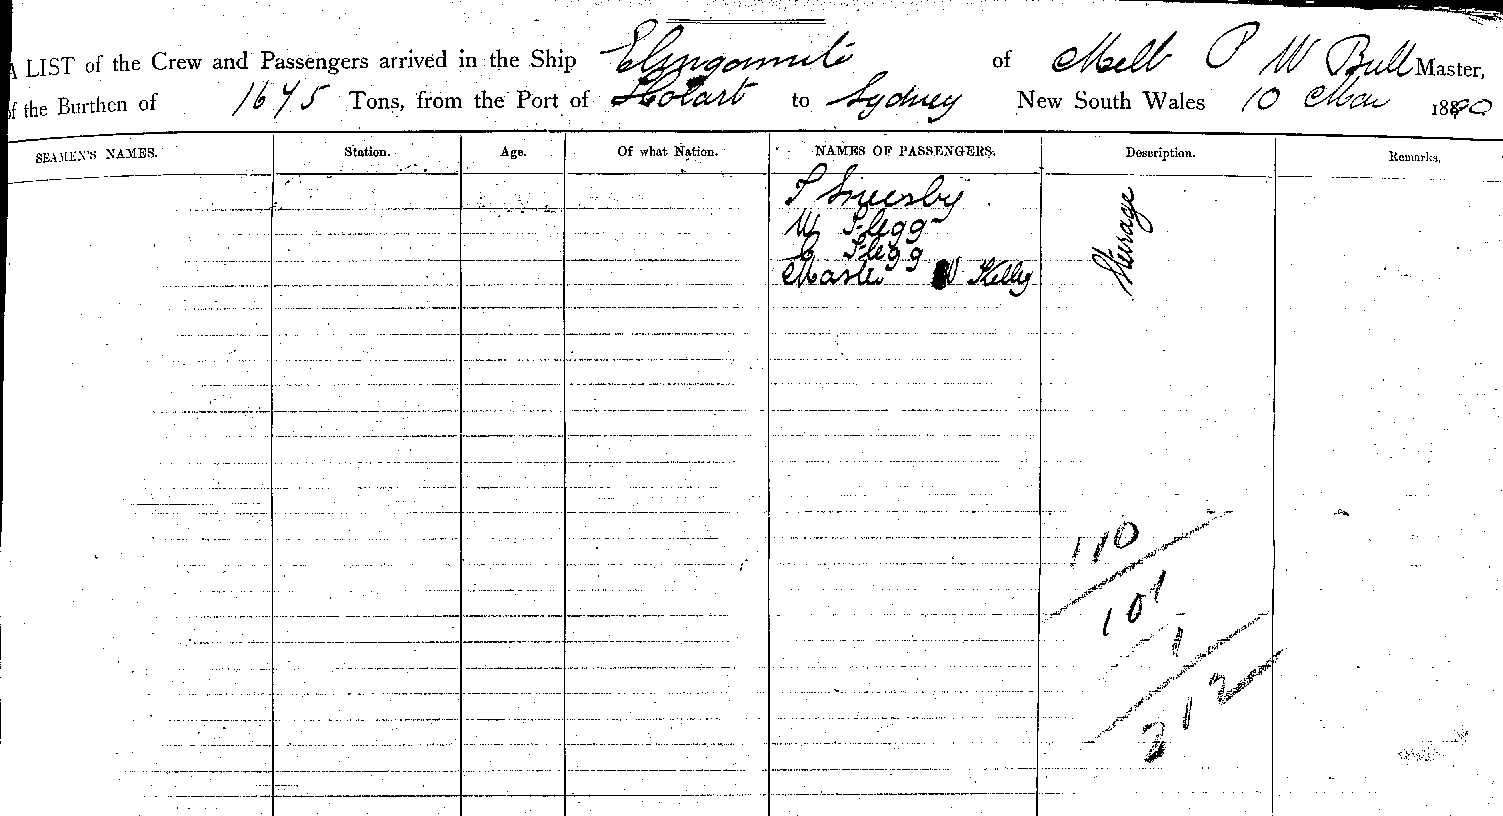 A LIST of the Crew and Passengers arrived in the Ship Elingamite of Melb P W Bull Master,
of the Burthen of 1675 Tons, from the Port of Hobart to Sydney New South Wales 10 Mar 1890
SEAMEN'S NAMES. Station. Age. Of what Nation. NAMES OF PASSENGERS. Description. Remarks.
W Flegg
Flegg
Master W Kelly
Steerage
110
101
1
2
212